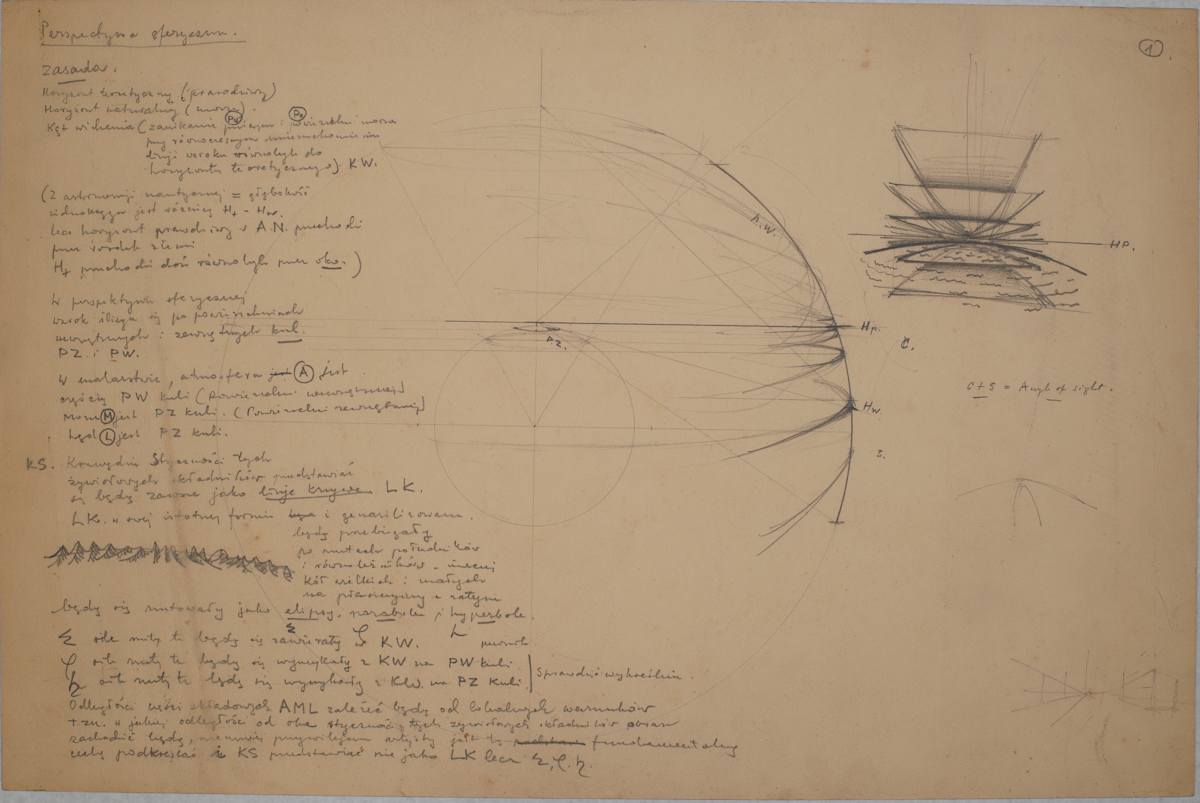 Perspektywa sferyczna.
1
Zasada.
Horyzont teoretyczny (prawdziwy)
Horyzont naturalny (morza).
Kąt widzenia (zanikanie i powierzchni morza
Pw Pz
przy równoczesnym unieruchomieniu
linji wzroku równoległe do
horyzontu teoretycznego) KW.
(Z astronomji nautycznej = głębokość
widnokręgu jest różnicą Ht - Hw.
lecz horyzont prawdziwy w A.N. przechodzi
przez środek ziemi
Ht przechodzi doń równolegle przez oko.)
W perspektywie sferycznej
wzrok ślizga się po powierzchniach
wewnętrznych i zewnętrznych kuli.
PZ i PW.
W malarstwie, atmosfera jest A jest
częścią PW kuli (Powierzchni wewnętrznej)
Morze M jest PZ kuli. (Powierzchni zewnętrznej)
Ląd L jest PZ kuli.
KS. Krawędzie Styczności tych
żywiołowych składników przedstawiać
się będą zawsze jako linje krzywe LK.
LK. w swej istotnej formie i generalizowane.
będą przebiegały
po rzutach południków
i równoleżników - inaczej
kół wielkich i małych
na płaszczyzny a zatym
będą się rzutowały jako elipsy, parabole i hyperbole.
o ile rzuty te będą się zawierały w KW.
o ile rzuty te będą się wymykały z KW na PW kuli
o ile rzuty te będą się wymykały z KW. na PZ kuli.
Sprawdzić wykreślnie.
Odległości części składowych AML zależeć będą od lokalnych warunków
t.zn. w jakiej odległości od oka styczność tych żywiołowych składników obrazu
zachodzić będą, niemniej przywilejem artysty jest tę fundamentalną
cechę podkreślać i KS przedstawiać nie jako LK lecz
K.W.
PZ.
Hp.
C.
Hw
S.
HP.
C+S = Angle of sight.